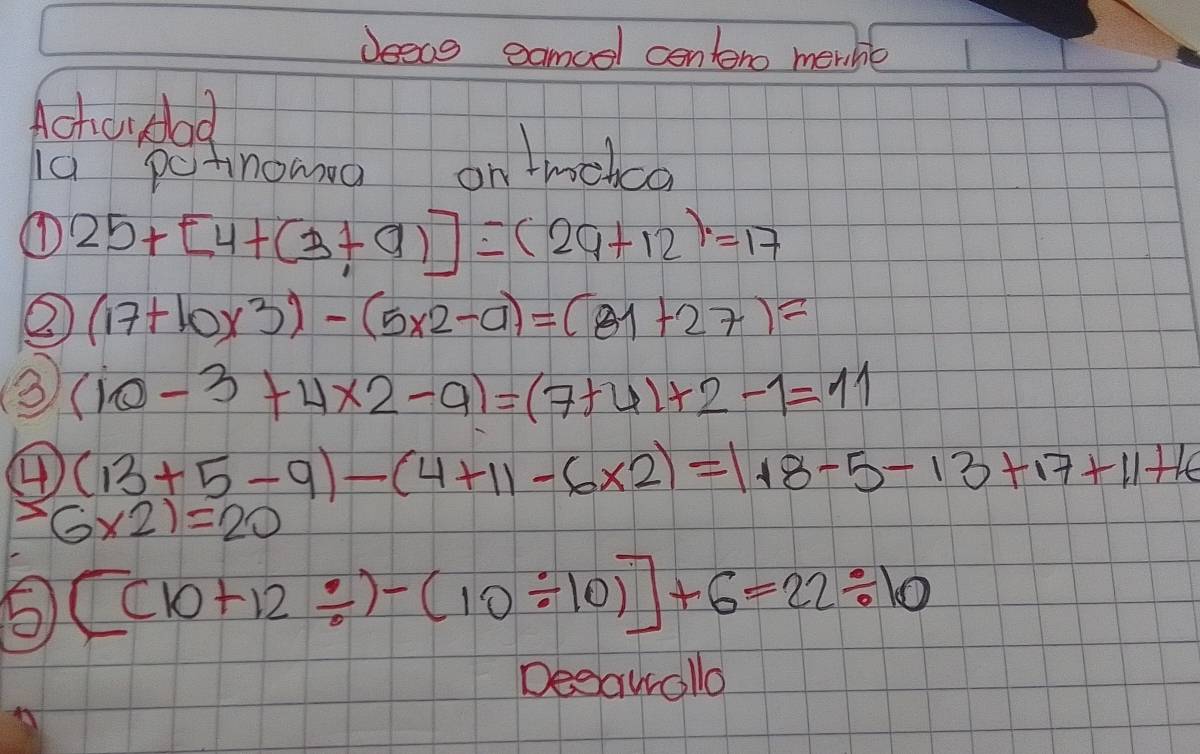 Jesus samuel centeno merino
Actividad
la potinomia aritmetica
① 25+[4+(3+9)]=(29+12)=17
② (17+10x3)-(5x2-9)=(81+27)=
③ (10-3+4x2-9)=(7+4)+2-1=11
④ (13+5-9)-(4+11-6x2)=(18-5-13+17+11+16
6x2)=20
⑤ [(10+12÷)-(10÷10)]+6=22÷10
Desarrollo